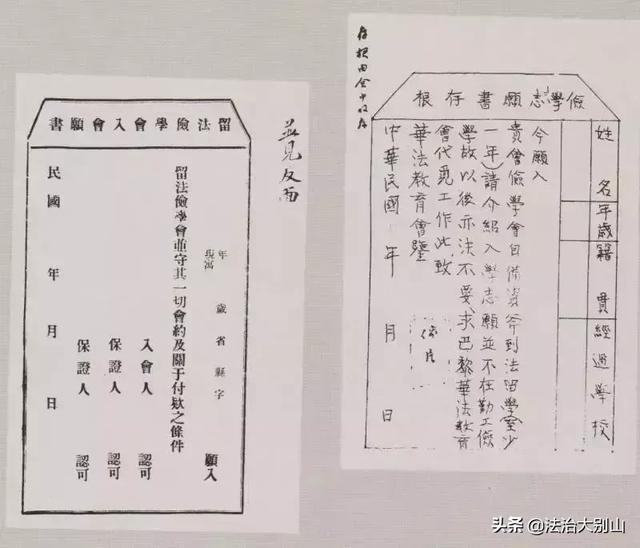 留法儉學會入會願書
年 歲 省 縣 字
現寓
願入
留法儉學會並守其一切會約及關于付欵之條件
入會人 認可
保證人 認可
保證人 認可
民國 年 月 日
並見反面
儉學志願書存根
姓名 年歲 籍貫 經過學校
今願入
貴會儉學會自備資斧到法留學(至少
一年)請介紹入學志願並不在勤工儉
學故以後亦法不要求巴黎華法教育
會代覓工作此致
華法教育會鑒
中華民國 年 月 日
头条 @法治大别山